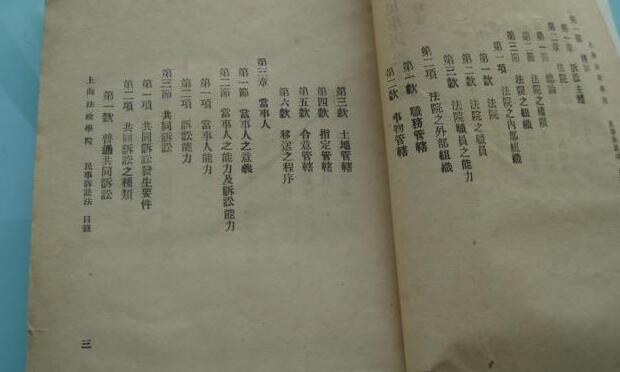 上海法政學院
第一章 訴訟主體
第二章 法院
第一節 總論
第二節 法院之權限
第三節 法院之組織
第一項 法院之內部組織
第一款 法院
第二款 法院之職員
第三款 法院職員之能力
第二項 法院之外部組織
第一款 職務管轄
第二款 事物管轄
第三款 土地管轄
第四款 指定管轄
第五款 合意管轄
第六款 移送之程序
第三章 當事人
第一節 當事人之意義
第二節 當事人之能力及訴訟能力
第一項 當事人能力
第二項 訴訟能力
第三節 共同訴訟
第一項 共同訴訟發生要件
第二項 共同訴訟之種類
第一款 普通共同訴訟
上海法政學院 民事訴訟法 目錄
三